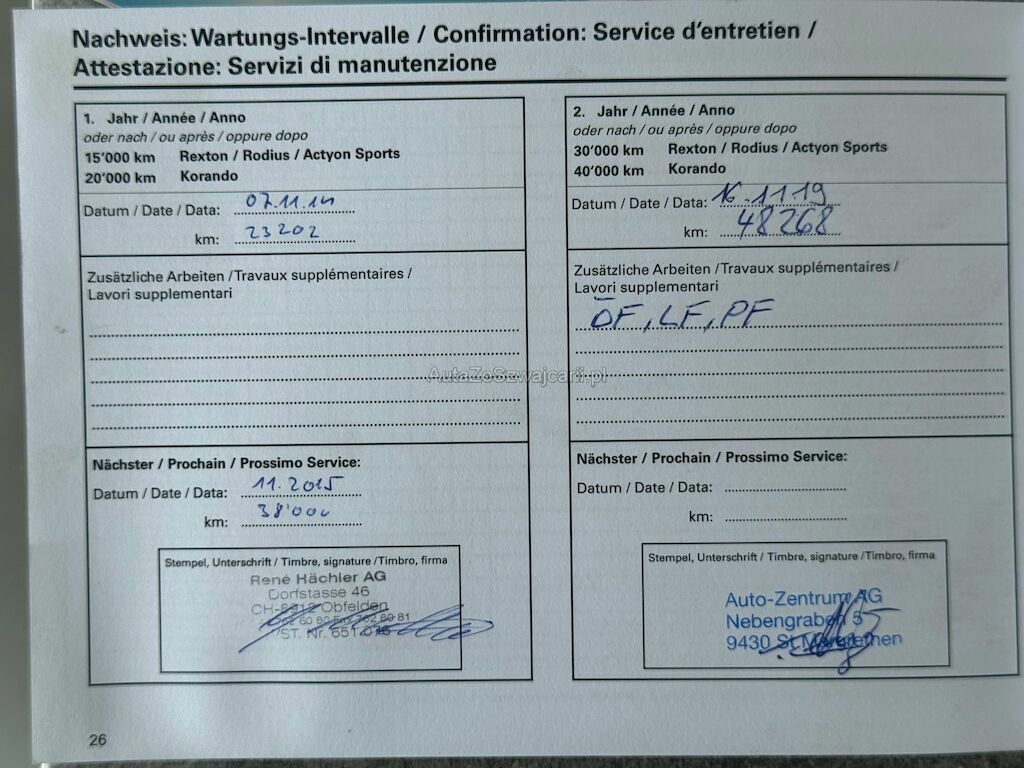 Nachweis: Wartungs-Intervalle / Confirmation: Service d'entretien /
Attestazione: Servizi di manutenzione
1. Jahr / Année / Anno
oder nach / ou après / oppure dopo
15'000 km Rexton / Rodius / Actyon Sports
20'000 km Korando
Datum / Date / Data: 07.11.14
km: 23202
Zusätzliche Arbeiten / Travaux supplémentaires /
Lavori supplementari
Nächster / Prochain / Prossimo Service:
Datum / Date / Data: 11.2015
km: 38'000
Stempel, Unterschrift / Timbre, signature / Timbro, firma
René Hächler AG
Dorfstasse 46
CH-8912 Obfelden
60 81
ST. Nr. 651
2. Jahr / Année / Anno
oder nach / ou après / oppure dopo
30'000 km Rexton / Rodius / Actyon Sports
40'000 km Korando
Datum / Date / Data: 16.11.19
km: 48268
Zusätzliche Arbeiten / Travaux supplémentaires /
Lavori supplementari
ÖF, LF, PF
Nächster / Prochain / Prossimo Service:
Datum / Date / Data:
km:
Stempel, Unterschrift / Timbre, signature / Timbro, firma
Auto-Zentrum AG
Nebengraben 5
9430 St. Margrethen
26
AutaZeSzwajcarii.pl